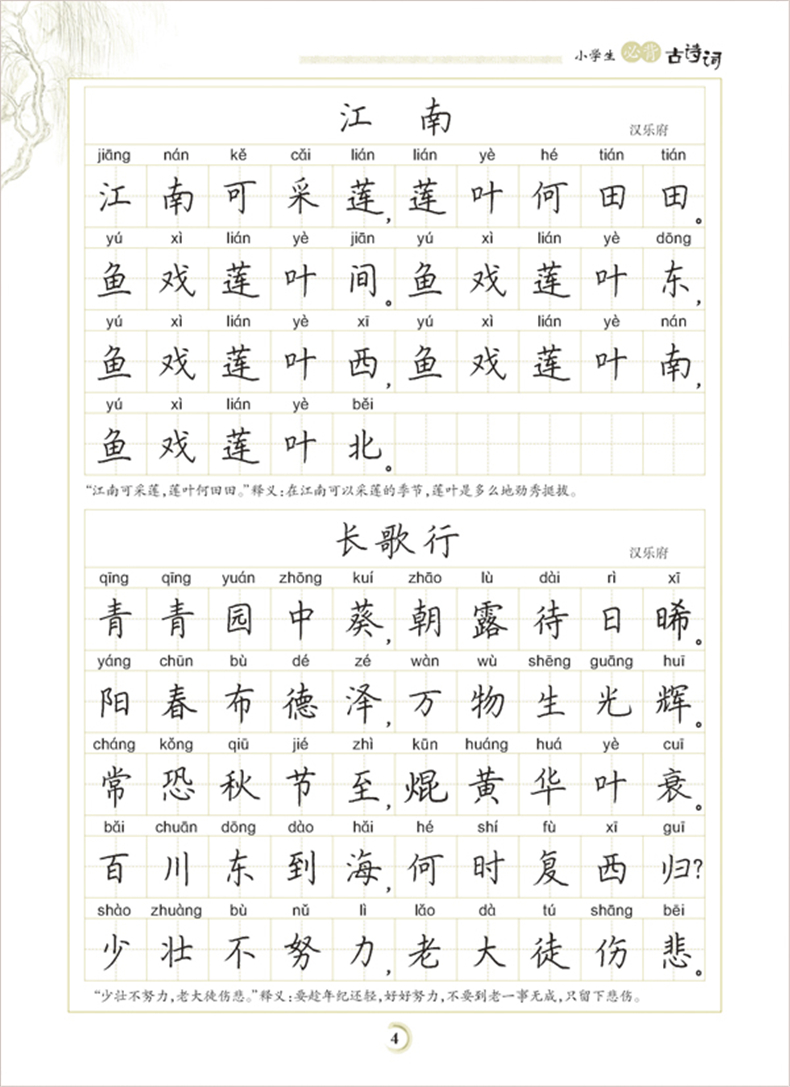 小学生必背古诗词
江 南
汉乐府
jiāng nán kě cǎi lián lián yè hé tián tián
江南可采莲,莲叶何田田。
yú xì lián yè jiān yú xì lián yè dōng
鱼戏莲叶间。鱼戏莲叶东,
yú xì lián yè xī yú xì lián yè nán
鱼戏莲叶西,鱼戏莲叶南,
yú xì lián yè běi
鱼戏莲叶北。
“江南可采莲,莲叶何田田。”释义:在江南可以采莲的季节,莲叶是多么地劲秀挺拔。
长歌行
汉乐府
qīng qīng yuán zhōng kuí zhāo lù dài rì xī
青青园中葵,朝露待日晞。
yáng chūn bù dé zé wàn wù shēng guāng huī
阳春布德泽,万物生光辉。
cháng kǒng qiū jié zhì kūn huáng huá yè cuī
常恐秋节至,焜黄华叶衰。
bǎi chuān dōng dào hǎi hé shí fù xī guī
百川东到海,何时复西归?
shào zhuàng bù nǔ lì lǎo dà tú shāng bēi
少壮不努力,老大徒伤悲。
“少壮不努力,老大徒伤悲。”释义:要趁年纪还轻,好好努力,不要到老一事无成,只留下悲伤。
4